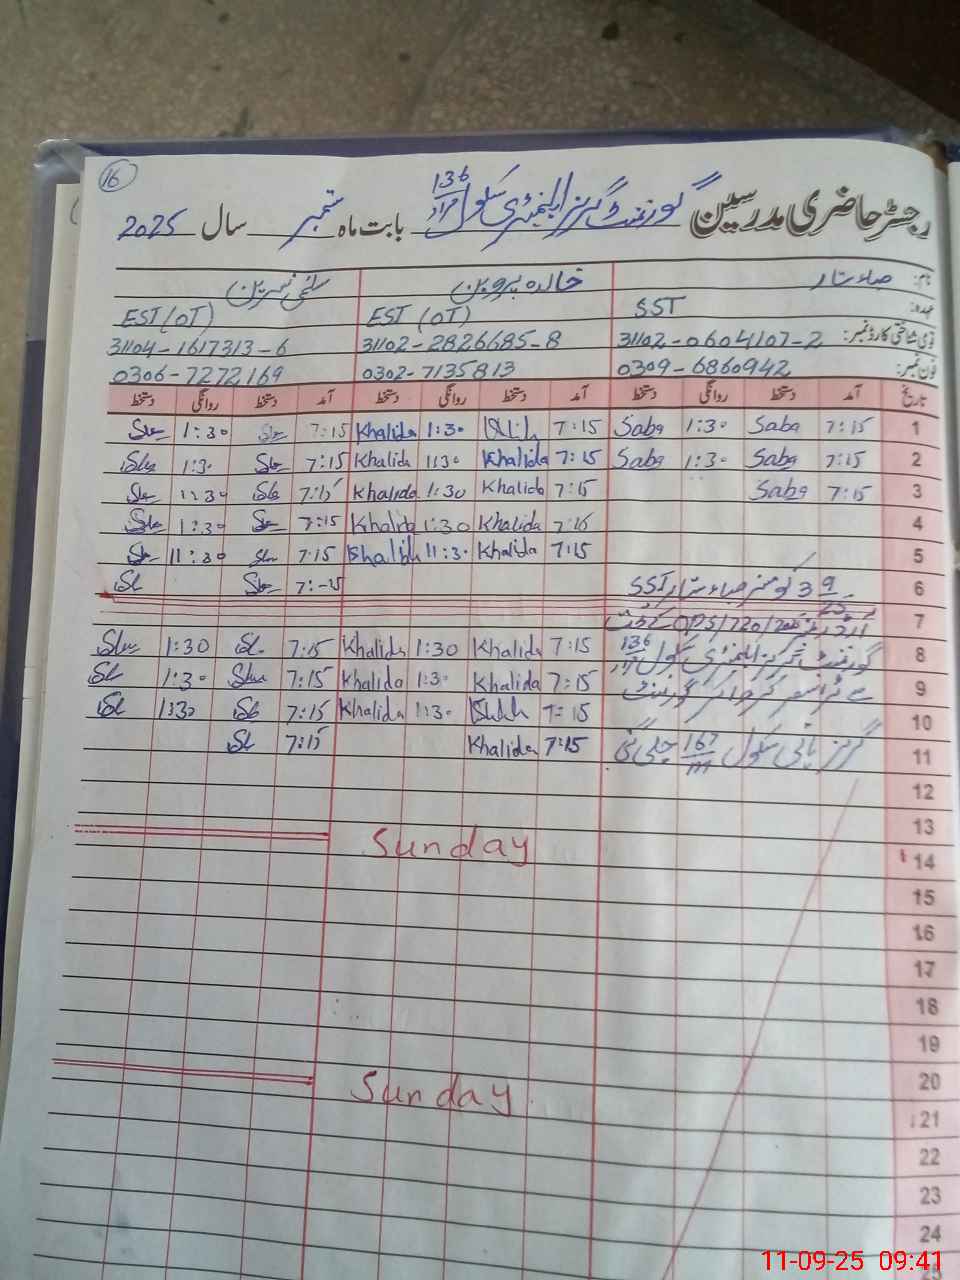 16
رجسٹر حاضری مدرسین گورنمنٹ گرلز ایلیمنٹری سکول 136/مراد بابت ماہ ستمبر سال 2025
نام: صباء ستار خالدہ پروین سلمیٰ نسرین
عہدہ: SST EST (OT) EST (OT)
قومی شناختی کارڈ نمبر: 31102-0604107-2 31102-2826685-8 31104-1617313-6
فون نمبر: 0309-6860942 0302-7135813 0306-7272169
تاریخ آمد دستخط روانگی دستخط آمد دستخط روانگی دستخط آمد دستخط روانگی دستخط
1 7:15 Saba 1:30 Saba 7:15 1:30 Khalida 7:15 1:30
2 7:15 Saba 1:30 Saba 7:15 Khalida 1:30 Khalida 7:15 1:30
3 7:15 Saba 7:15 Khalida 1:30 Khalida 7:15 1:30
4 Khalida 1:30 Khalida 7:15 1:30
5 7:15 Khalida 11:30 Khalida 7:15 11:30
6 صباء ستار SST
7
8 گورنمنٹ گرلز ایلیمنٹری سکول 136/مراد 7:15 Khalida 1:30 Khalida 7:15 1:30
9 سے ٹرانسفر گورنمنٹ 7:15 Khalida 1:30 Khalida 7:15 1:30
10 7:15 1:30 Khalida 7:15 1:30
11 گرلز ہائی سکول 167/m چلی گئی 7:15 Khalida 7:15
12
13
14 Sunday
15
16
17
18
19
20
21 Sunday
22
23
24
25
11-09-25 09:41